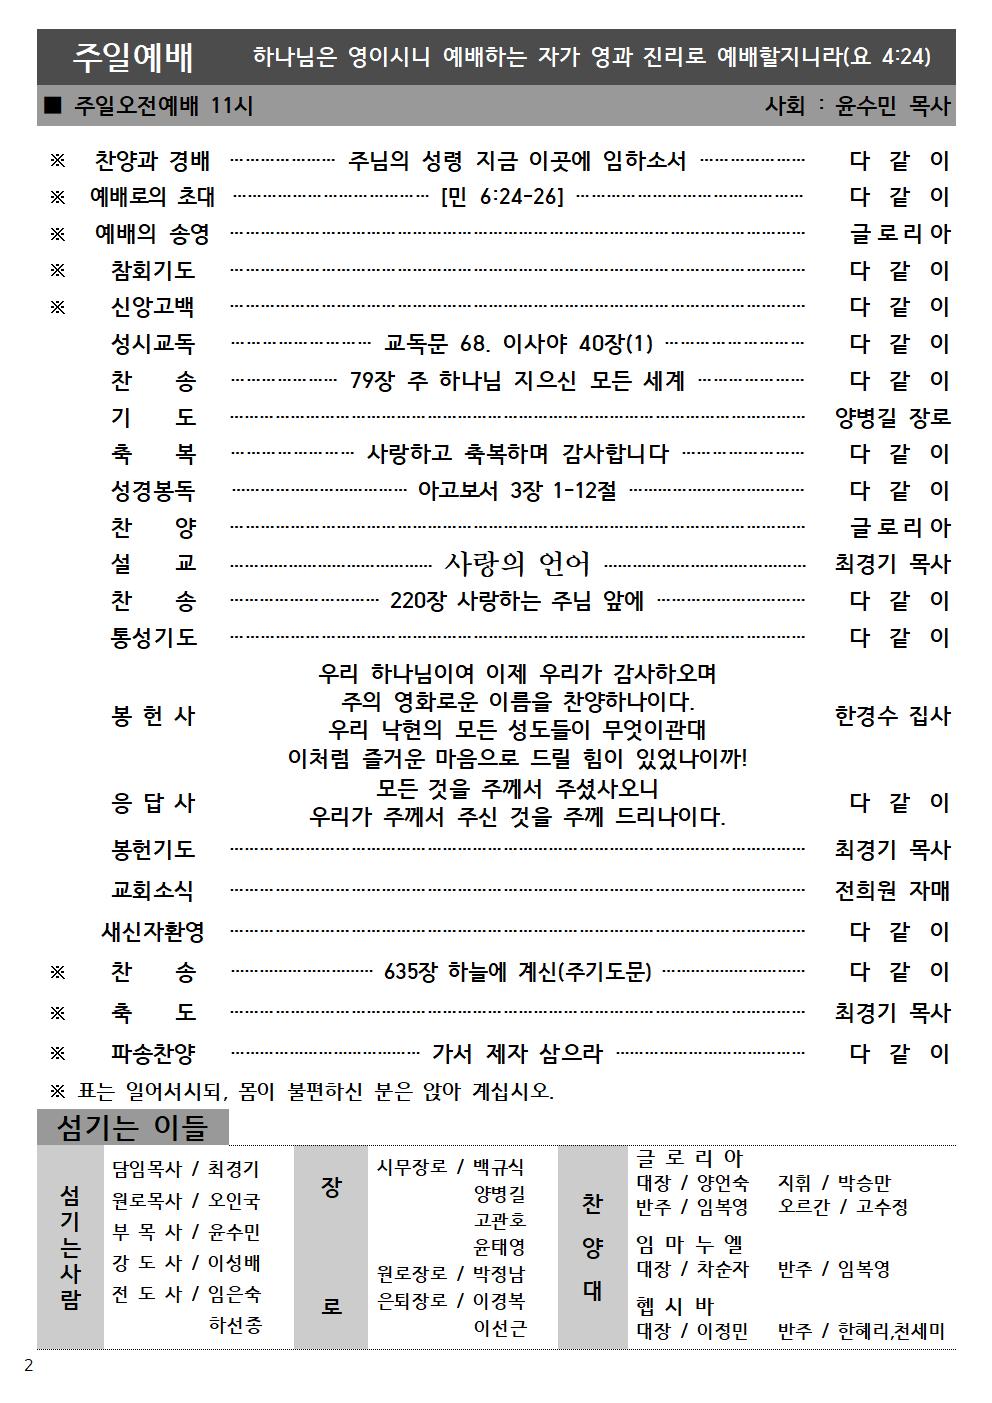 주일예배 하나님은 영이시니 예배하는 자가 영과 진리로 예배할지니라(요 4:24)
■ 주일오전예배 11시 사회 : 윤수민 목사
※ 찬양과 경배 ………………… 주님의 성령 지금 이곳에 임하소서 ………………… 다 같 이
※ 예배로의 초대 ………………………………… [민 6:24-26] ……………………………………… 다 같 이
※ 예배의 송영 …………………………………………………………………………………………………… 글로리아
※ 참회기도 …………………………………………………………………………………………………… 다 같 이
※ 신앙고백 …………………………………………………………………………………………………… 다 같 이
성시교독 ……………………… 교독문 68. 이사야 40장(1) ……………………… 다 같 이
찬 송 ………………… 79장 주 하나님 지으신 모든 세계 ………………… 다 같 이
기 도 …………………………………………………………………………………………………… 양병길 장로
축 복 …………………… 사랑하고 축복하며 감사합니다 …………………… 다 같 이
성경봉독 ……………………………… 아고보서 3장 1-12절 ……………………………… 다 같 이
찬 양 …………………………………………………………………………………………………… 글로리아
설 교 ………………………………… 사랑의 언어 ………………………………… 최경기 목사
찬 송 ………………………… 220장 사랑하는 주님 앞에 ………………………… 다 같 이
통성기도 …………………………………………………………………………………………………… 다 같 이
우리 하나님이여 이제 우리가 감사하오며
주의 영화로운 이름을 찬양하나이다.
봉 헌 사 우리 낙현의 모든 성도들이 무엇이관대 한경수 집사
이처럼 즐거운 마음으로 드릴 힘이 있었나이까!
모든 것을 주께서 주셨사오니
응 답 사 우리가 주께서 주신 것을 주께 드리나이다. 다 같 이
봉헌기도 …………………………………………………………………………………………………… 최경기 목사
교회소식 …………………………………………………………………………………………………… 전희원 자매
새신자환영 …………………………………………………………………………………………………… 다 같 이
※ 찬 송 ………………………… 635장 하늘에 계신(주기도문) ………………………… 다 같 이
※ 축 도 …………………………………………………………………………………………………… 최경기 목사
※ 파송찬양 ………………………………… 가서 제자 삼으라 ………………………………… 다 같 이
※ 표는 일어서시되, 몸이 불편하신 분은 앉아 계십시오.
섬기는 이들
섬기는사람
담임목사 / 최경기
원로목사 / 오인국
부 목 사 / 윤수민
강 도 사 / 이성배
전 도 사 / 임은숙
하선종
장로
시무장로 / 백규식
양병길
고관호
윤태영
원로장로 / 박정남
은퇴장로 / 이경복
이선근
찬양대
글 로 리 아
대장 / 양언숙 지휘 / 박승만
반주 / 임복영 오르간 / 고수정
임 마 누 엘
대장 / 차순자 반주 / 임복영
헵 시 바
대장 / 이정민 반주 / 한혜리,천세미
2